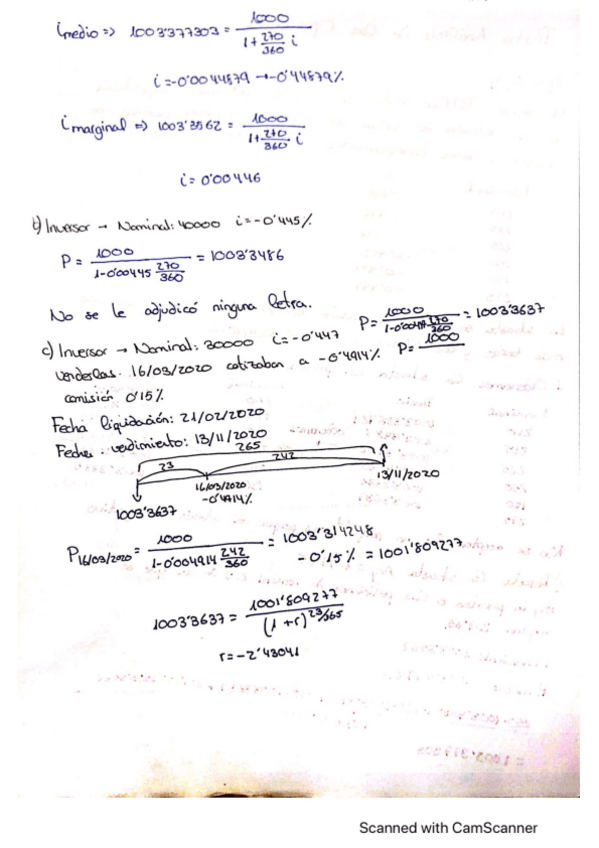 imedio => 1003'377303 = 1000 / 1+ 270/360 i
i = -0'0044879 → -0'44879%
imarginal => 1003'3562 = 1000 / 1+ 270/360 i
i = 0'00446
b) Inversor → Nominal: 40000 i = -0'445%
P = 1000 / 1-0'00445 270/360 = 1003'3486
No se le adjudicó ninguna letra.
c) Inversor → Nominal: 30000 i = -0'447 P = 1000 / 1-0'00447 270/360 = 1003'3637
venderlas. 16/03/2020 cotizaban a -0'4914% P = 1000
comisión 0'15%
Fecha liquidación: 21/02/2020
Fecha vencimiento: 13/11/2020
265
23 242
16/03/2020 13/11/2020
-0'4914%
1003'3637
P16/03/2020 = 1000 / 1-0'004914 242/360 = 1003'314248
-0'15% = 1001'809277
1003'3637 = 1001'809277 / (1+r)^23/365
r = -2'43041
Scanned with CamScanner